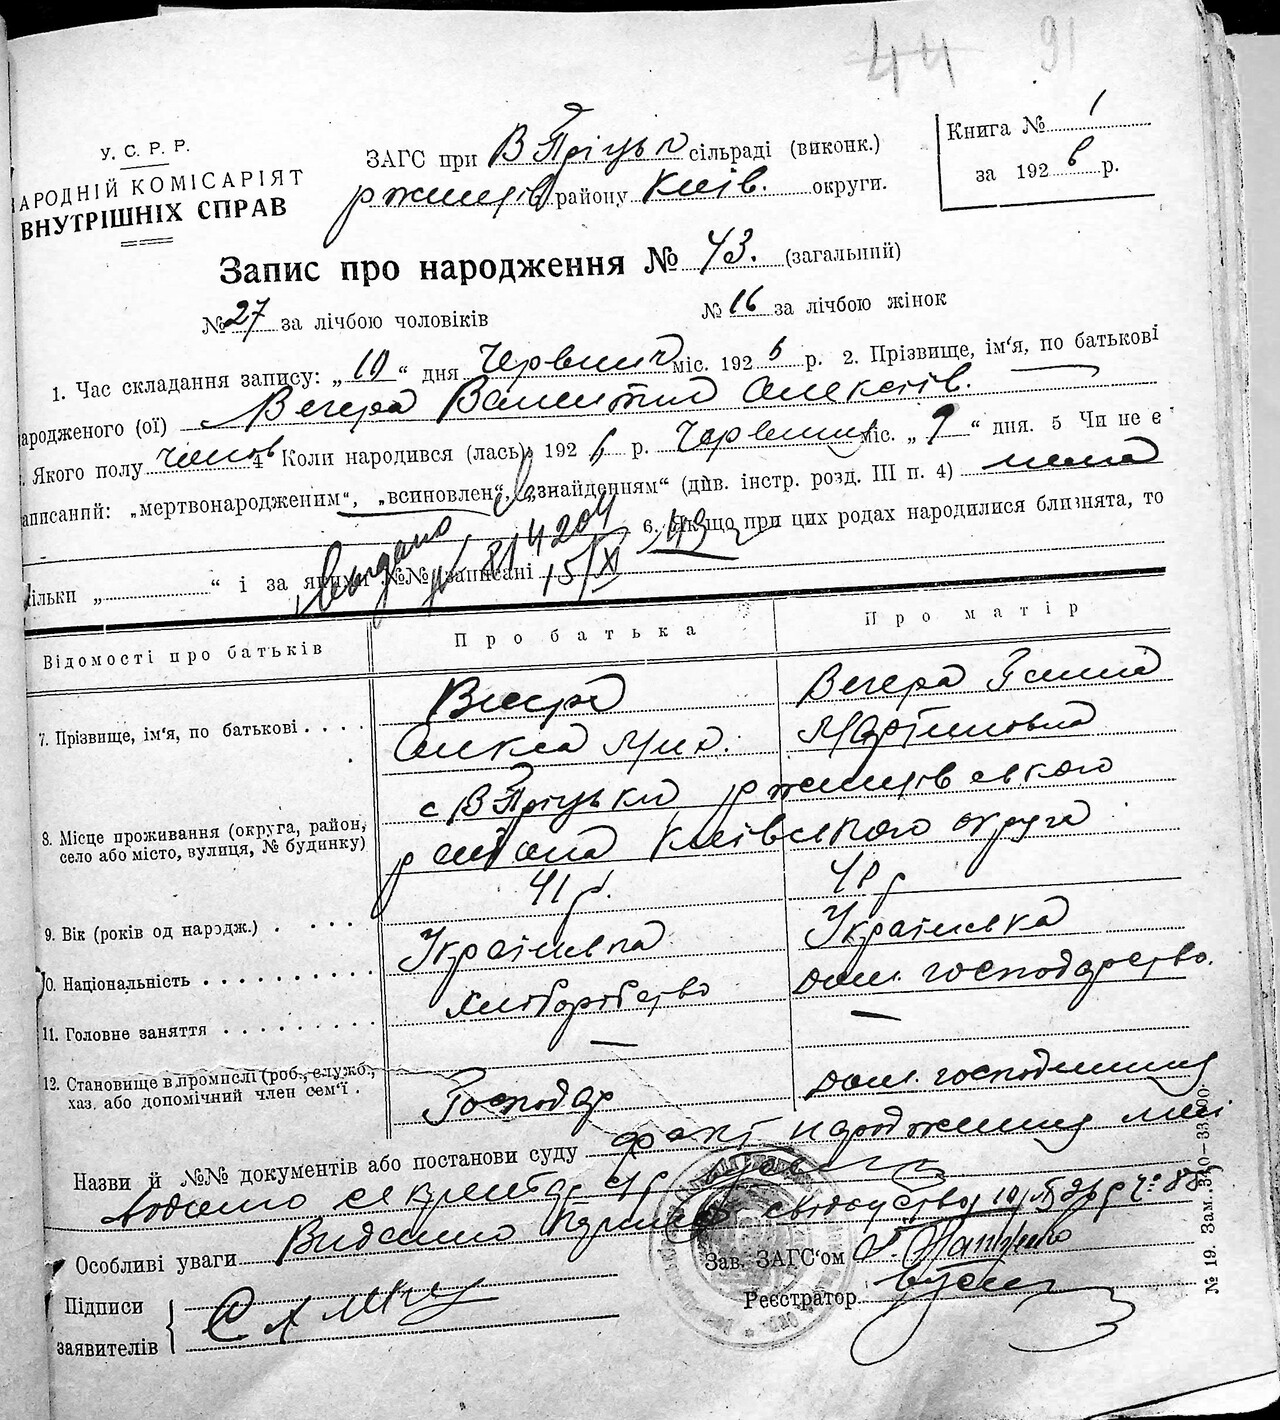 44 91
У. С. Р. Р.
АРОДНІЙ КОМІСАРІЯТ
ВНУТРІШНІХ СПРАВ
ЗАГС при В Пріцьк сільраді (виконк.)
ржищів району Київ. округи.
Книга № 1
за 1926 р.
Запис про народження № 43. (загальний)
№ 27 за лічбою чоловіків № 16 за лічбою жінок
1. Час складання запису: „10“ дня Червня міс. 1926 р. 2. Прізвище, ім'я, по батькові
ародженого (ої) Вечера Валентин Олексіїв.
Якого полу чолов 4 Коли народився (лась): 1926 р. Червня міс. „9“ дня. 5 Чи не є
аписаний: „мертвонародженим“, „всиновлен“, „знайденям“ (див. інстр. розд. III п. 4) нема
6. Якщо при цих родах народилися близнята, то
ільки „ “ і за якими №№ записані
Выдано 814204
15/XI 49
Відомості про батьків Про батька Про матір
7. Прізвище, ім'я, по батькові Вечера Вечера Ганна
Олекса Мих. Мартиновна
8. Місце проживання (округа, район, с В Пріцьки ржищівського
село або місто, вулиця, № будинку) района Київського округа
9. Вік (років од народж.) 41 р. 40 р
0. Національність Українська Українська
11. Головне заняття хліборобство дом. господарство.
12. Становище в промислі (роб., служб., — —
хаз. або допомічний член сем'ї Господар дом. господиния
Назви й №№ документів або постанови суду факт народження мені
відомо секретар с/р
Особливі уваги Видано свідоцтво 10/VI 26 р № 88
Зав. ЗАГС'ом
Реєстратор
Підписи
заявителів
№ 19. Зам.